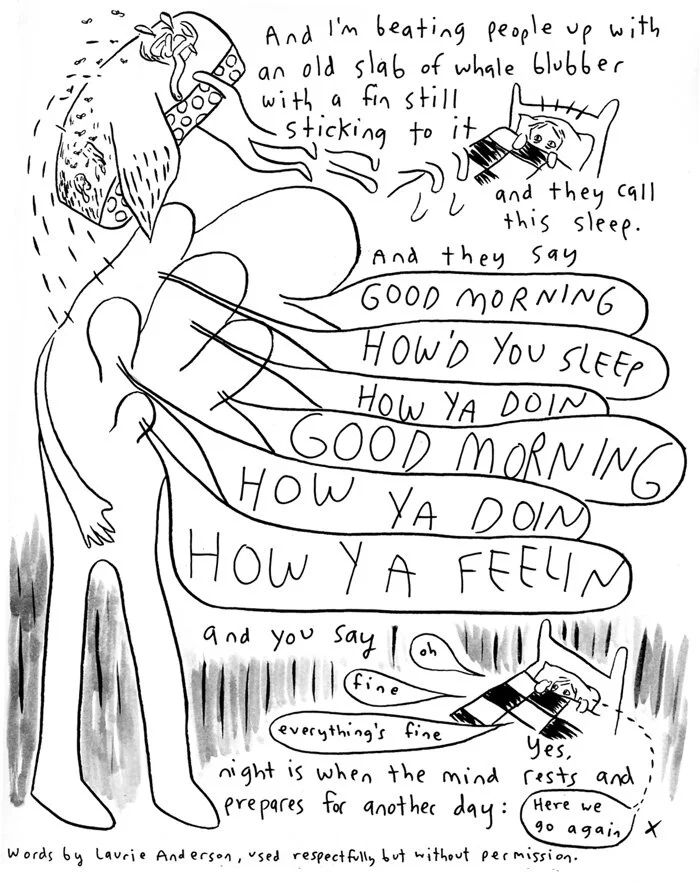 And I'm beating people up with
an old slab of whale blubber
with a fin still
sticking to it
and they call
this sleep.
And they say
GOOD MORNING
HOW'D YOU SLEEP
HOW YA DOIN
GOOD MORNING
HOW YA DOIN
HOW YA FEELIN
and you say
oh
fine
everything's fine
Yes,
night is when the mind rests and
prepares for another day:
Here we
go again
x
Words by Laurie Anderson, used respectfully but without permission.